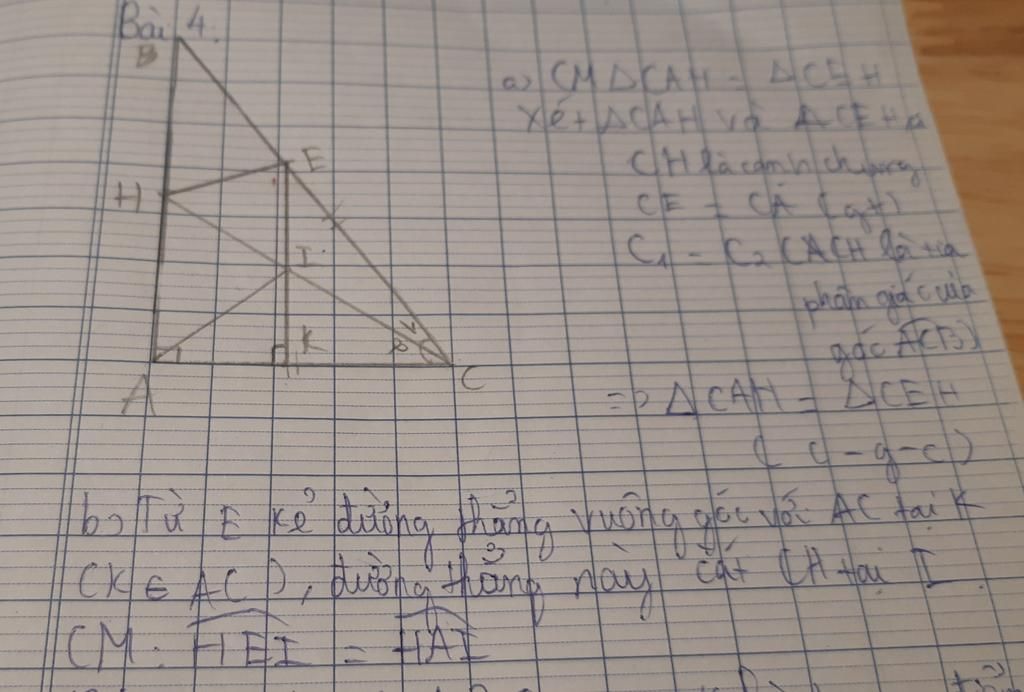 Bài 4.
B
E
H
I
K
A
C
a) CM ΔCAH = ΔCEH
Xét ΔCAH và ΔCEH
CH là cạnh chung
CE = CA (gt)
C₁ = C₂ (CH là tia
phân giác của
góc ACB)
=> ΔCAH = ΔCEH
(c-g-c)
b) Từ E kẻ đường thẳng vuông góc với AC tại K
(K ∈ AC), đường thẳng này cắt CH tại I
CM: HEI = HAI